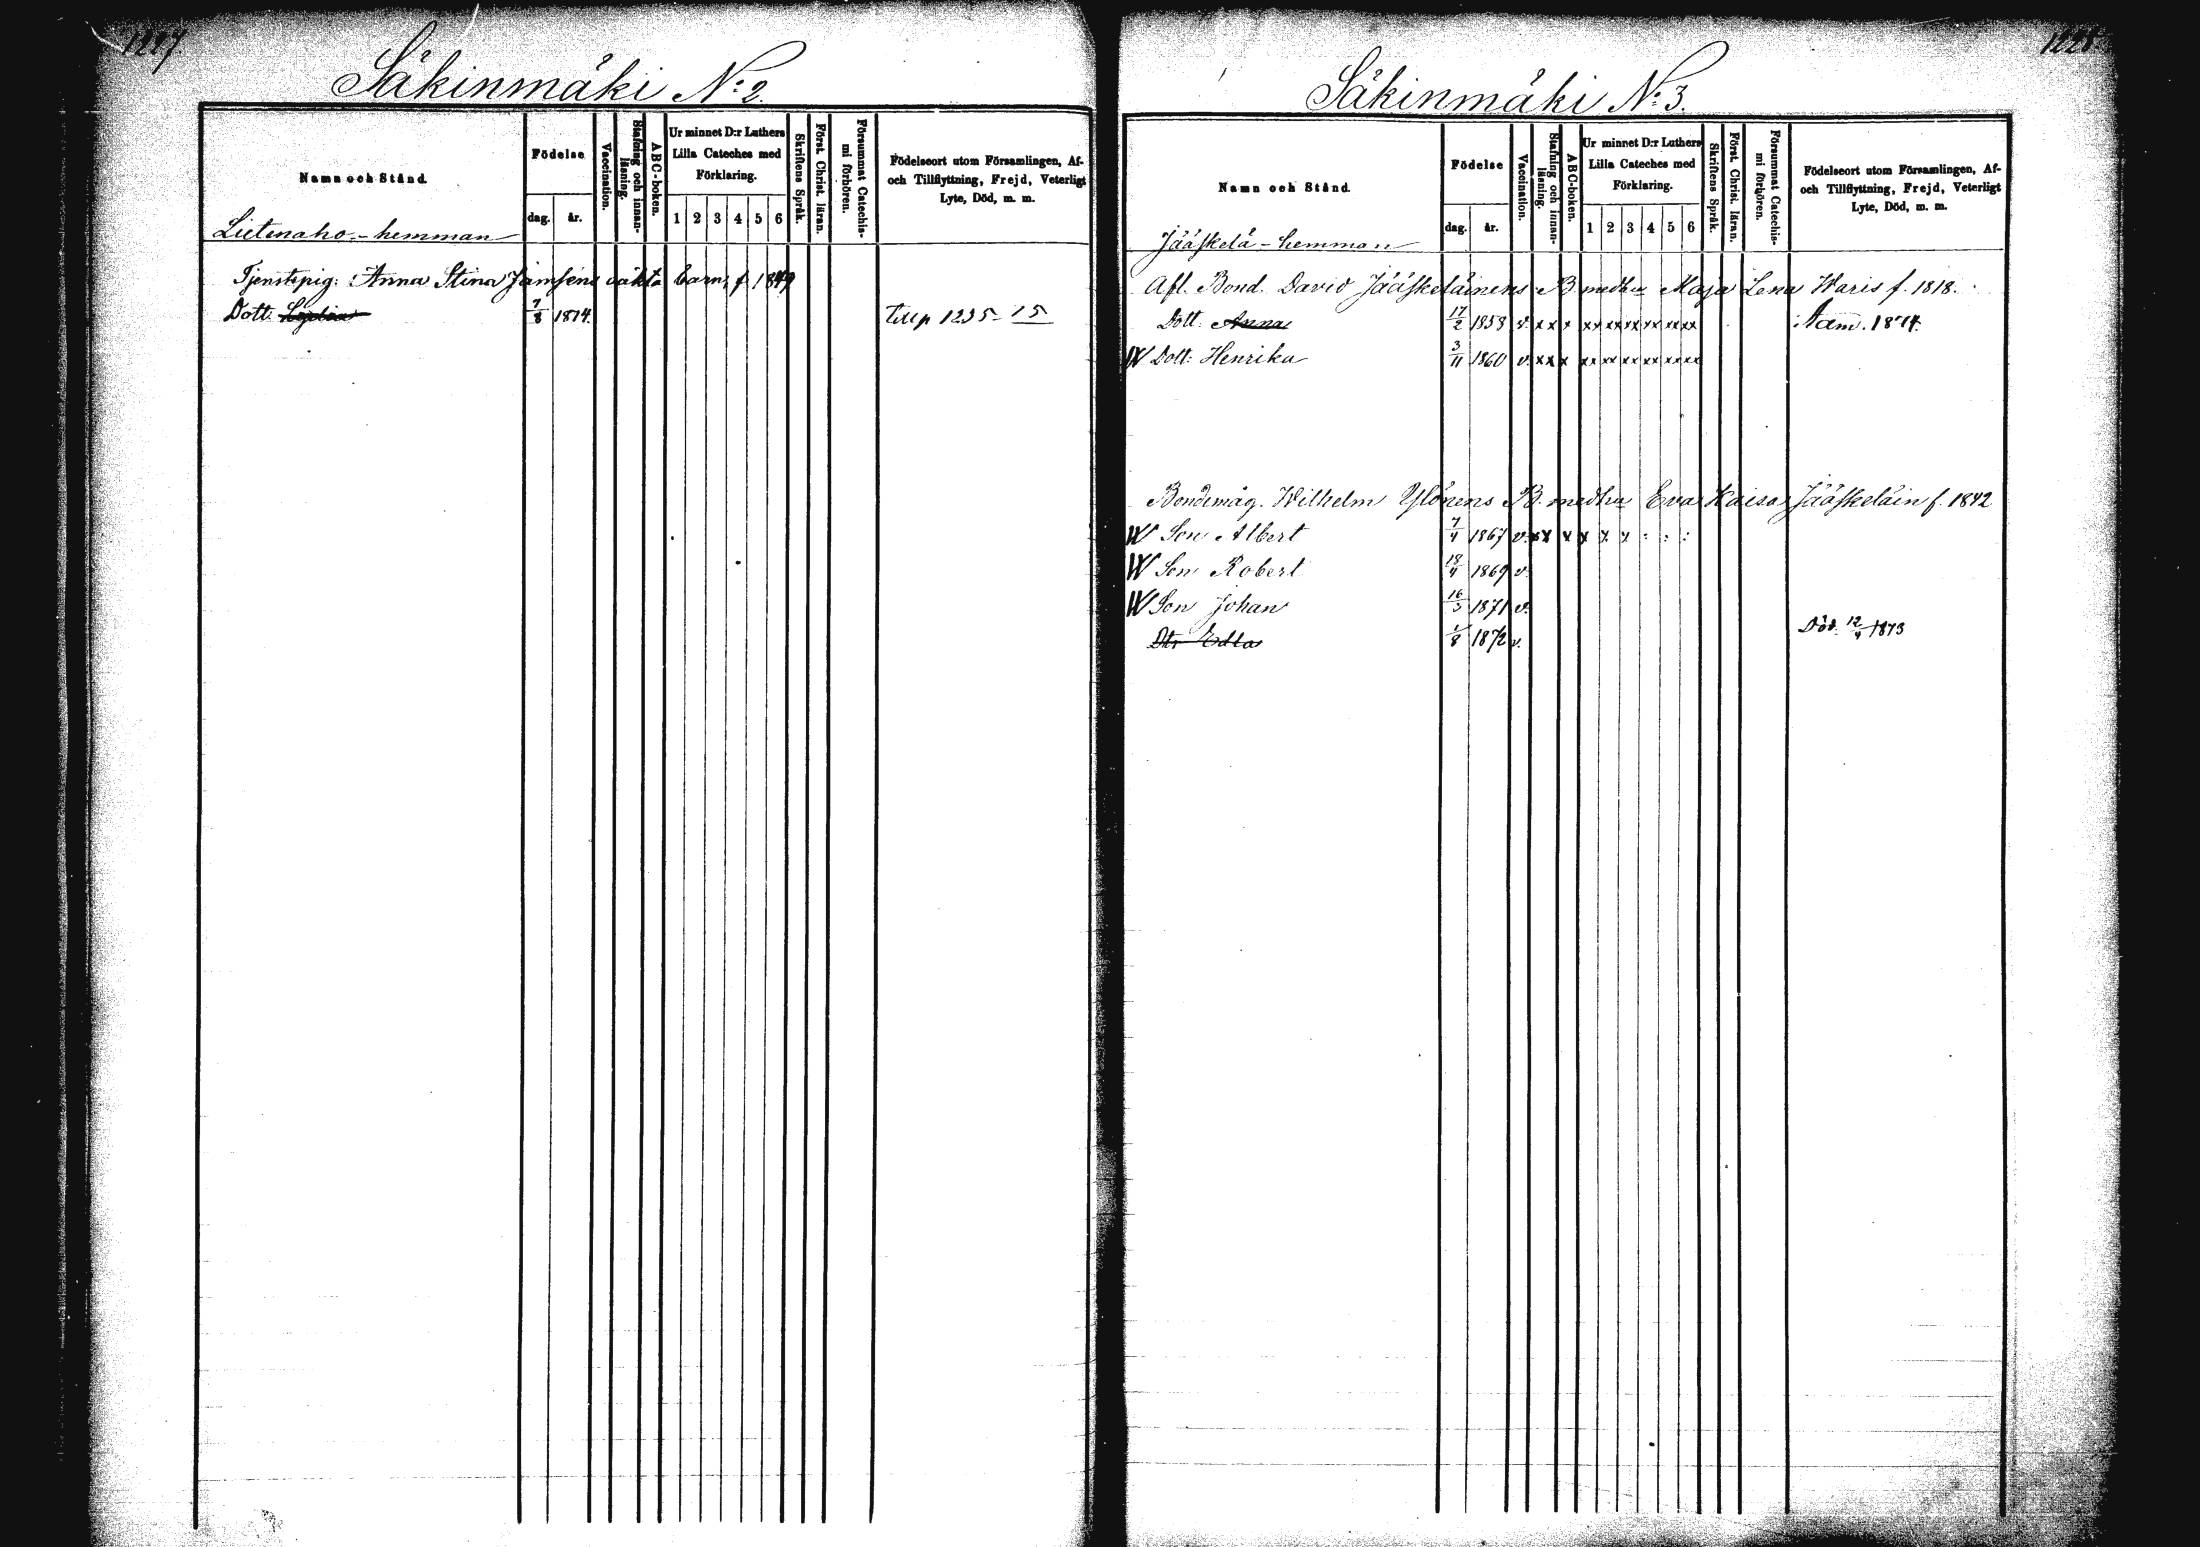 1227.
Säkinmäki N:o 2.
Namn och Stånd.
Födelse
dag.
år.
Vaccination.
Stafning och innan-
läsning.
ABC-boken.
Ur minnet D:r Luthers
Lilla Cateches med
Förklaring.
1 2 3 4 5 6
Skriftens Språk.
Först. Christ. läran.
Försummat Catechis-
mi förhören.
Födelseort utom Församlingen, Af-
och Tillflyttning, Frejd, Veterligt
Lyte, Död, m. m.
Lietenaho - hemman
Tjenstepig: Anna Stina Jämsens oäkta barn, f. 1849
Dott. 7/8 1874. 1235
Säkinmäki N:o 3.
Namn och Stånd.
Födelse
dag.
år.
Vaccination.
Stafning och innan-
läsning.
ABC-boken.
Ur minnet D:r Luthers
Lilla Cateches med
Förklaring.
1 2 3 4 5 6
Skriftens Språk.
Först. Christ. läran.
Försummat Catechis-
mi förhören.
Födelseort utom Församlingen, Af-
och Tillflyttning, Frejd, Veterligt
Lyte, Död, m. m.
Jääskelä - hemman
Afl. Bond. David Jääskeläinens B. medhu Maja Lena Waris f. 1818.
Dott. Anna 17/2 1858 v. xx x xx xx xx xx xx xx Adm. 1874.
W Dott. Henrika 3/11 1860 v. xx x xx xx xx xx xx xx
Bondemåg. Wilhelm Ylönens B. medhu Eva Kaisa Jääskeläin f. 1842
W Son Albert 7/4 1867 v. xx x x x x : : :
W Son Robert 18/4 1869 v.
W Son Johan 16/3 1871 v.
Dtr Edla 1/8 1872 v. Död. 12/4 1873